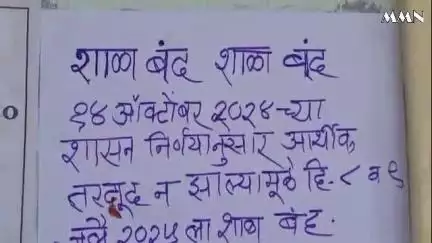 MMN
शाळा बंद शाळा बंद
१४ ऑक्टोंबर २०२४-च्या
शासन निर्णयानुसार आर्थीक
तरतूद न झाल्यामूळे दि. ८ व ९
जुलै २०२५ ला शाळा बंद.